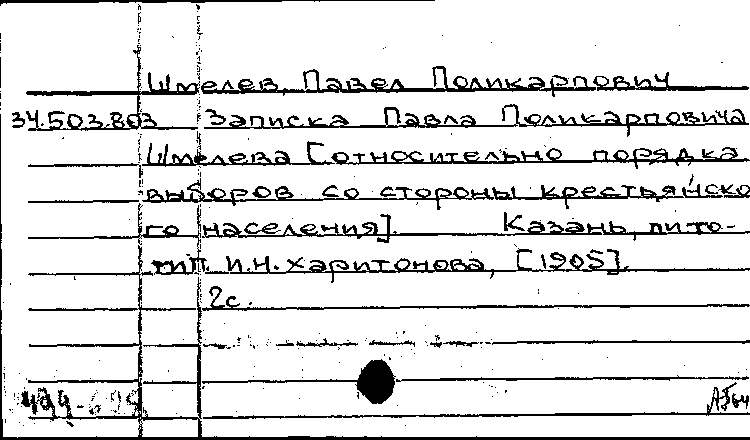 Шмелев, Павел Поликарпович
34.503.803 Записка Павла Поликарповича
Шмелева [относительно порядка
выборов со стороны крестьянско
го населения]. Казань, лито-
тип. И.Н. Харитонова, [1905].
2с.